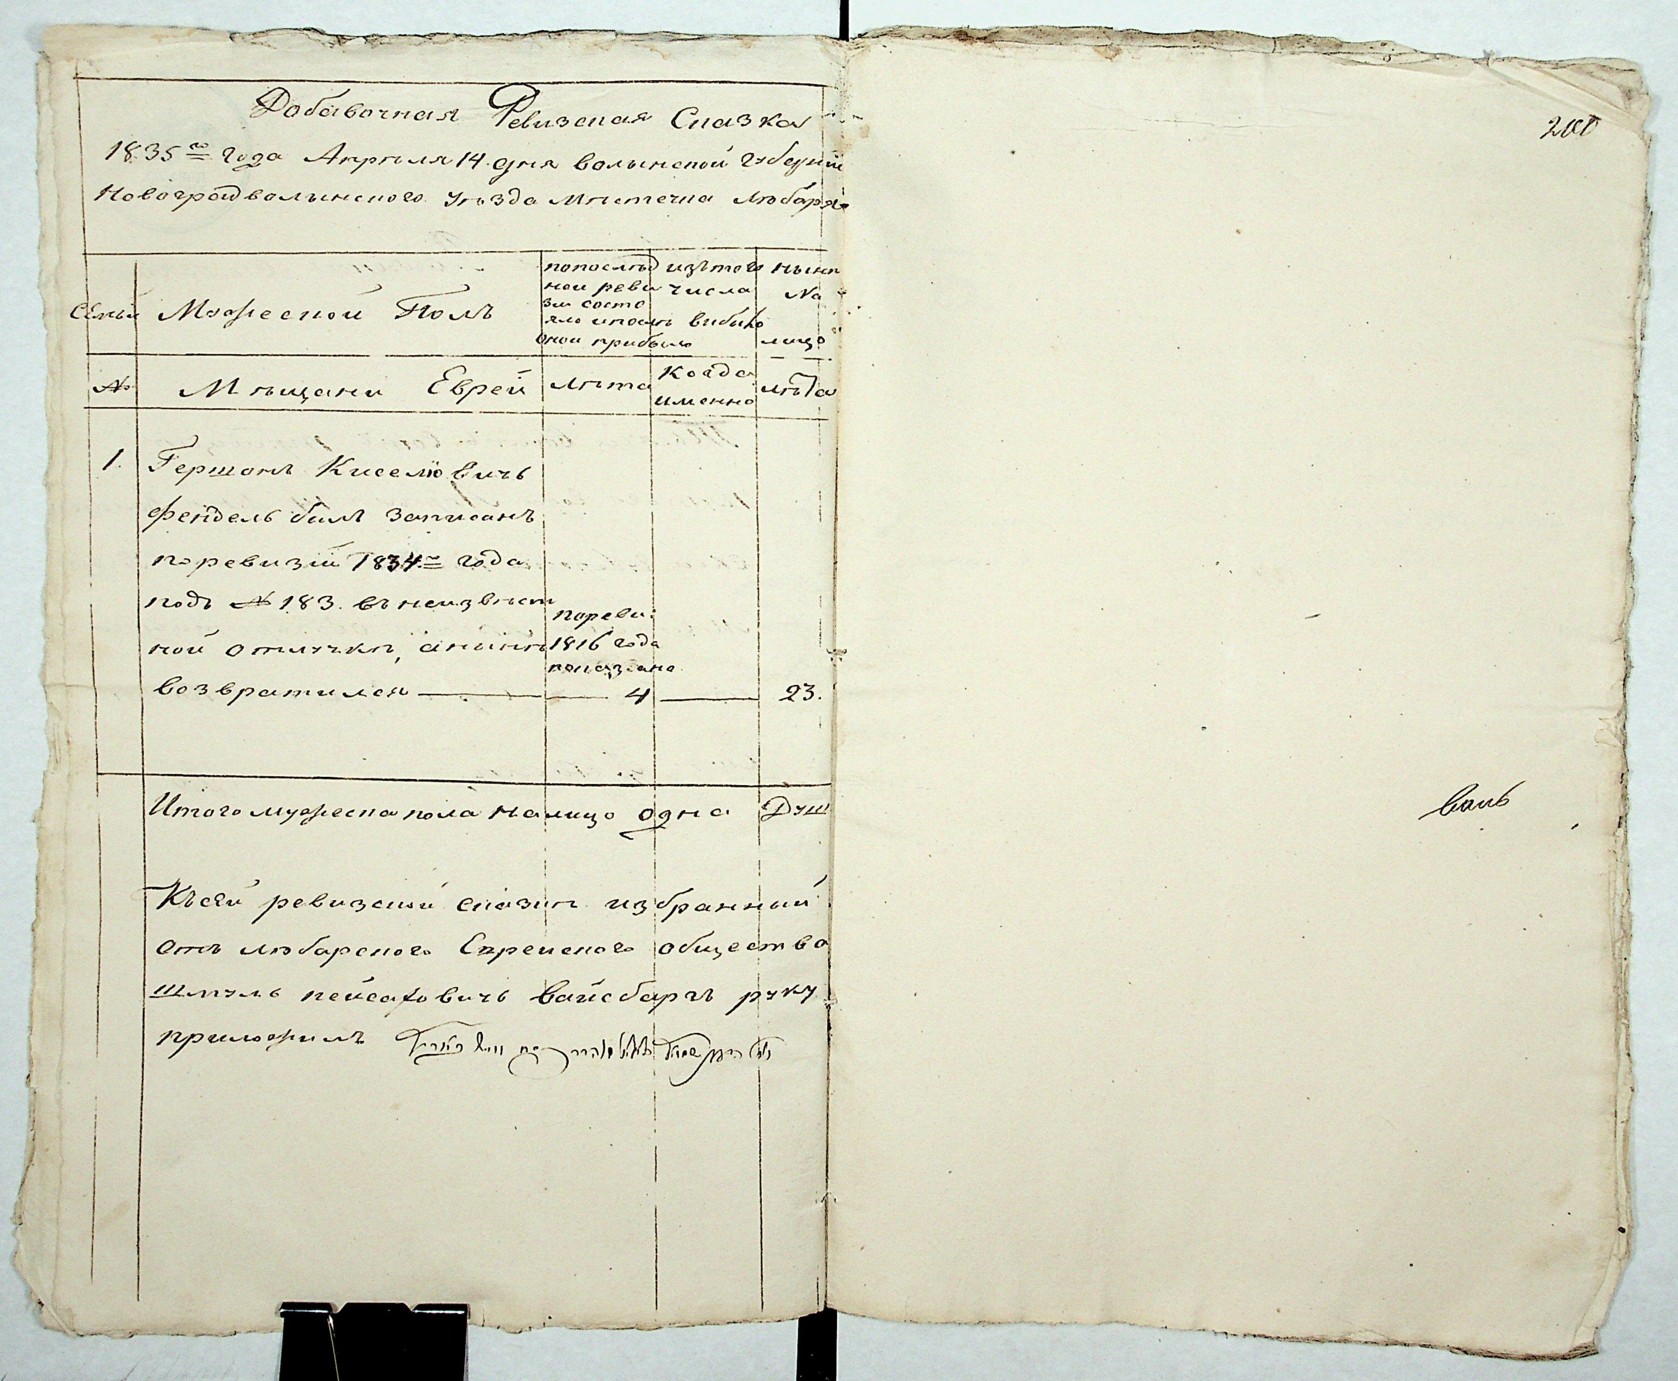 Добавочная Ревизская Сказка
1835го Года Апрѣля 14 дня Волынской Губернии
Новоградволынского уѣзда Мѣстечка Любара
Семьи
Мужеской Полъ
попослѣд
ней реви
зии состо
яло и посл
оной прибыло
изътого
числа
выбыло
нынѣ
На
лицо
№
Мѣщани Еврей
лѣта
когда
именно
лѣта
1.
Гершонъ Киселiовичъ
Фендель былъ записанъ
поревизiи 1834го года
подъ № 183. въ неизвѣст
ной отлучки, анынѣ
возвратился
пореви:
1816 года
показано
4
23.
Итого мужеска пола налицо одна Душ
Късей ревизской сказки избранный
отъ Любарского Еврейского общества
Шмуль Пейсаховичъ Вайсбаргъ руку
приложилъ
200